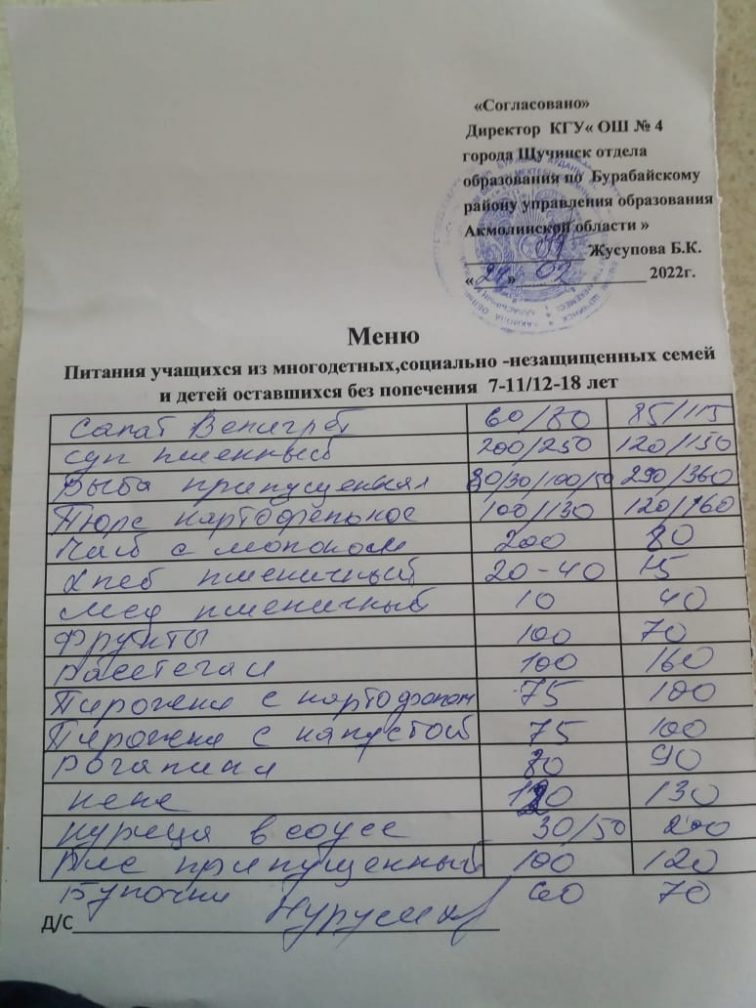 «Согласовано»
Директор КГУ« ОШ № 4
города Щучинск отдела
образования по Бурабайскому
району управления образования
Акмолинской области »
Жусупова Б.К.
«24» 02 2022г.
Меню
Питания учащихся из многодетных,социально -незащищенных семей
и детей оставшихся без попечения 7-11/12-18 лет
Салат Венигрет 60/80 85/115
Суп пшенный 200/250 120/150
Рыба припущенная 80/30/100/50 290/360
Пюре картофельное 100/130 120/160
Чай с молоком 200 80
Хлеб пшеничный 20-40 15
Мед пшеничный 10 40
Фрукты 100 70
Расстегаи 100 160
Пирожки с картофелем 75 100
Пирожки с капустой 75 100
Рогалики 80 90
кекс 120 130
курица в соусе 30/50 200
Рис припущенный 100 120
Булочки 60 70
Д/С